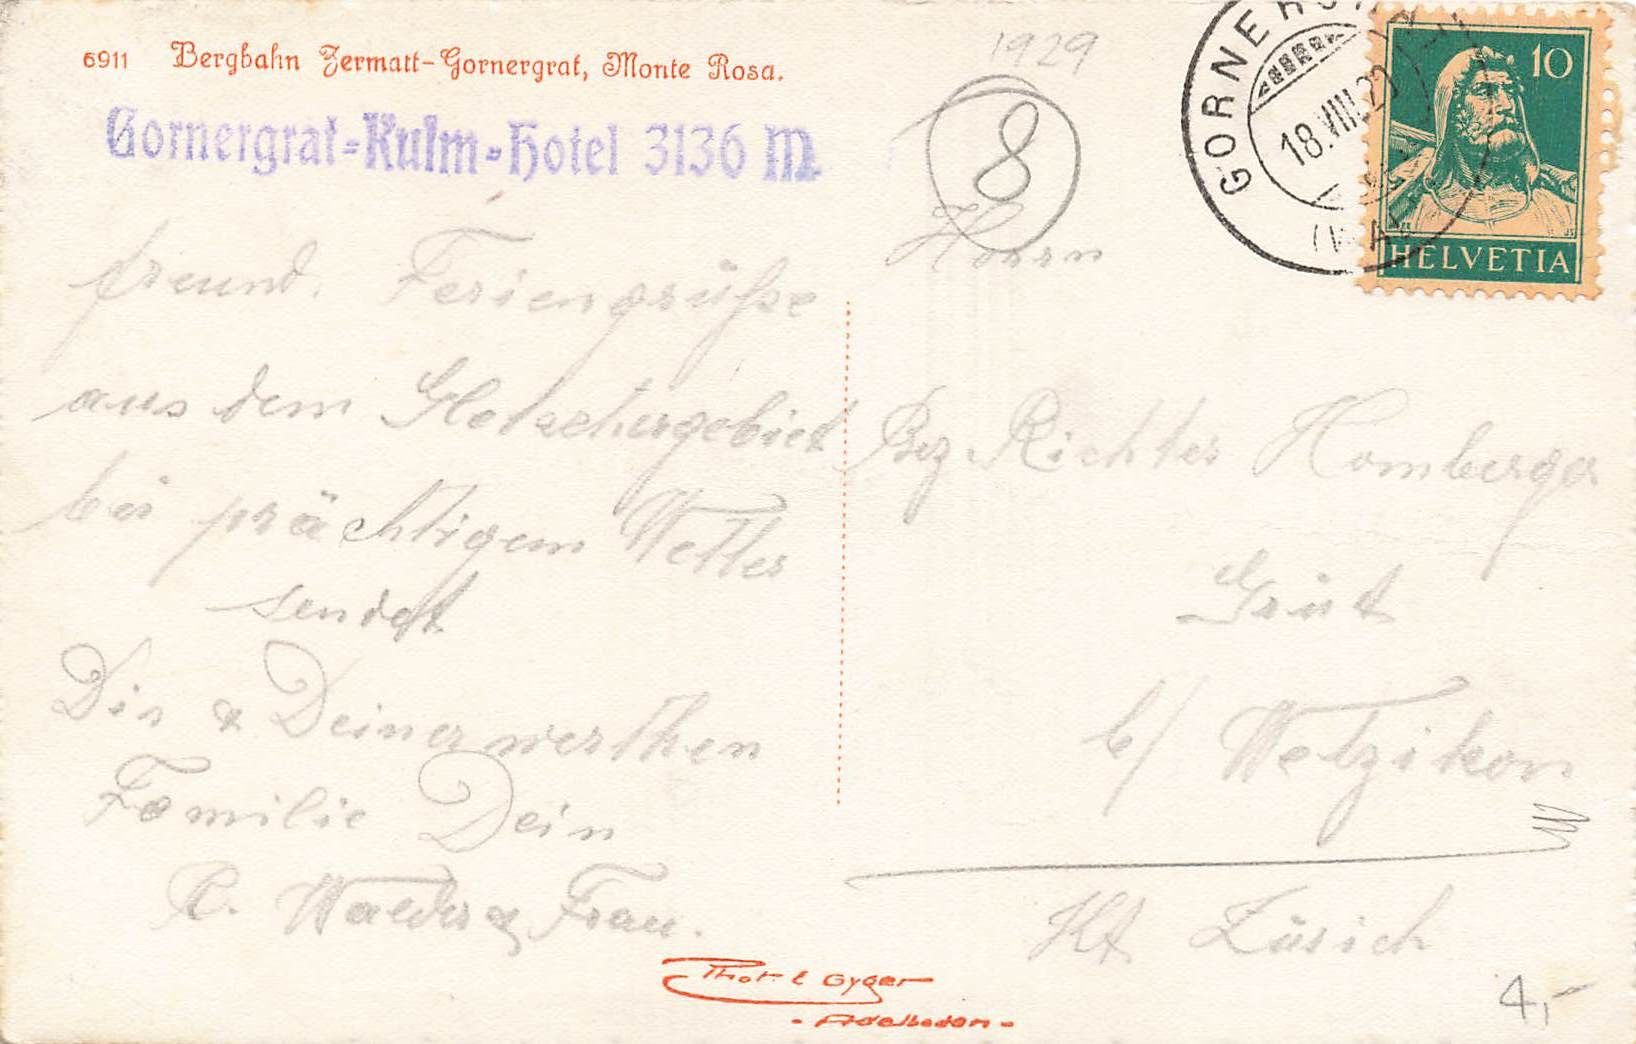 6911 Bergbahn Zermatt-Gornergrat, Monte Rosa.
Gornergrat-Kulm-Hotel 3136 M
freund. Feriengrüsse
aus dem Gletschergebiet
bei prächtigem Wetter
sendet
Dir & Deiner werthen
Familie Dein
R. Walder & Frau.
1929
8
Herrn
Bez. Richter Homberger
Grüt
b/ Wetzikon
Kt Zürich
4,-
GORNERGRAT
18.VIII.29
10
HELVETIA
Phot. E Gyger
- Adelboden -